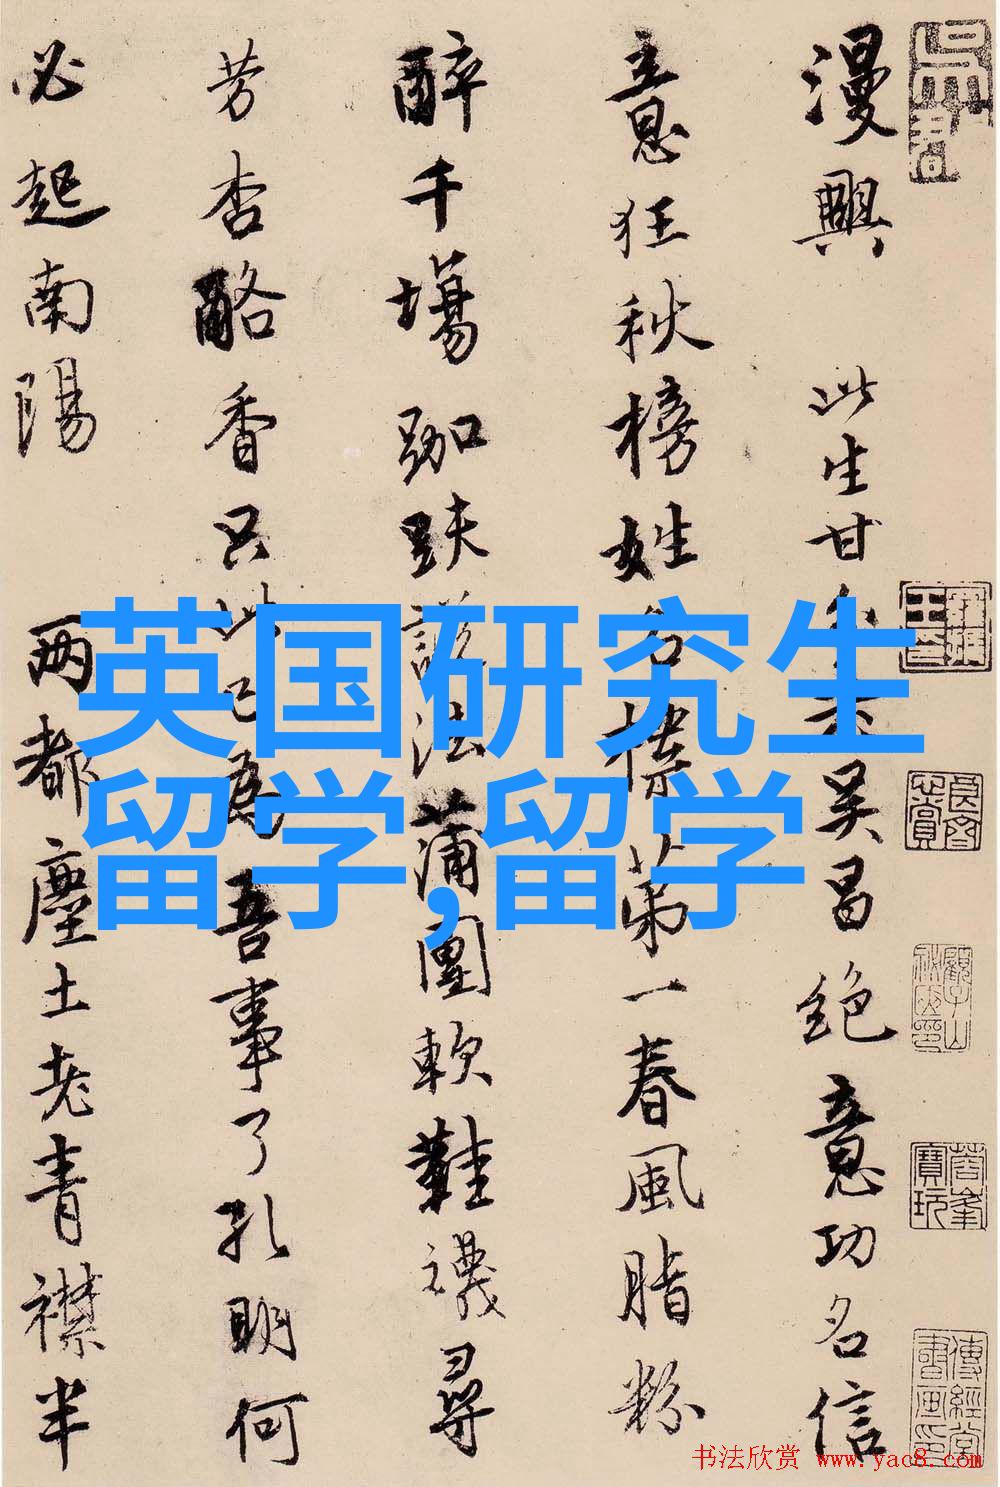 漫興 此生甘吳昌絕意功名信
意狂秋榜姓名標第一春風脂粉
醉千場跏趺說法蒲團軟鞋襪尋
芳杏酪香只此已為吾事了孔明何
必起南陽 兩都塵土老青襟半
英国研究生
留学,留学
书法欣赏 www.yac8.com